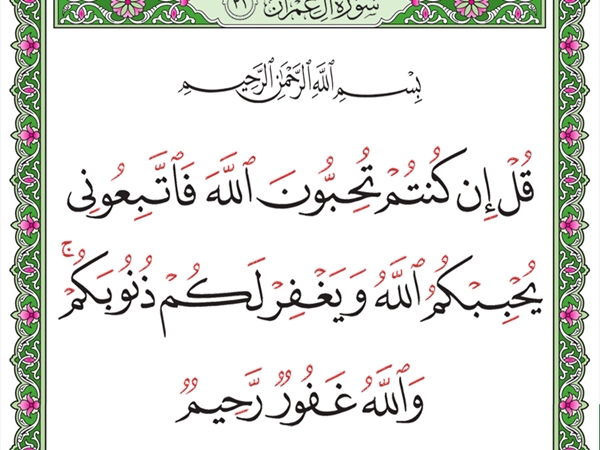 سُورَةُ آلِ عِمْرَان ٣١
بِسْمِ ٱللَّهِ ٱلرَّحْمَٰنِ ٱلرَّحِيمِ
قُلْ إِن كُنتُمْ تُحِبُّونَ ٱللَّهَ فَٱتَّبِعُونِى
يُحْبِبْكُمُ ٱللَّهُ وَيَغْفِرْ لَكُمْ ذُنُوبَكُمْ ۚ
وَٱللَّهُ غَفُورٌ رَّحِيمٌ